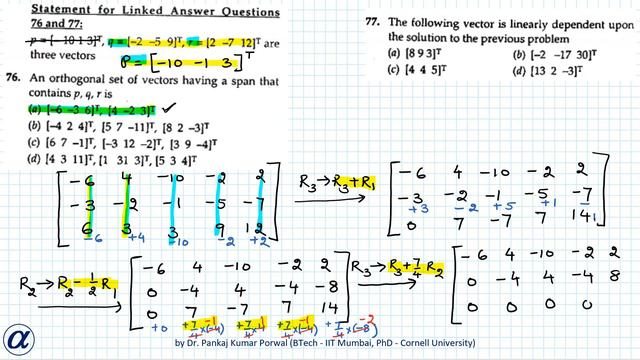 Statement for Linked Answer Questions
76 and 77:
p = [-10 1 3]ᵀ, q = [-2 -5 9]ᵀ, r = [2 -7 12]ᵀ are
three vectors
P = [-10 -1 3]ᵀ
76. An orthogonal set of vectors having a span that
contains p, q, r is
(a) [-6 -3 6]ᵀ, [4 -2 3]ᵀ ✓
(b) [-4 2 4]ᵀ, [5 7 -11]ᵀ, [8 2 -3]ᵀ
(c) [6 7 -1]ᵀ, [-3 12 -2]ᵀ, [3 9 -4]ᵀ
(d) [4 3 11]ᵀ, [1 31 3]ᵀ, [5 3 4]ᵀ
77. The following vector is linearly dependent upon
the solution to the previous problem
(a) [8 9 3]ᵀ (b) [-2 -17 30]ᵀ
(c) [4 4 5]ᵀ (d) [13 2 -3]ᵀ
-6 4 -10 -2 2
-3 -2 -1 -5 -7
6 3 3 9 12
-6 +4 -10 -2 +2
R₃ → R₃ + R₁
-6 4 -10 -2 2
-3 -2 -1 -5 -7
+3 -2 +5 +1 -1
0 7 -7 7 14
R₂ → R₂ - 1/2 R₁
-6 4 -10 -2 2
0 -4 4 -4 -8
0 7 -7 7 14
+0 +7/4 x(-4) +7/4 x4 +7/4 x(-4) +7/4 x(-8)
-1 1 -1 -2
R₃ → R₃ + 7/4 R₂
-6 4 -10 -2 2
0 -4 4 -4 8
0 0 0 0
α
by Dr. Pankaj Kumar Porwal (BTech - IIT Mumbai, PhD - Cornell University)